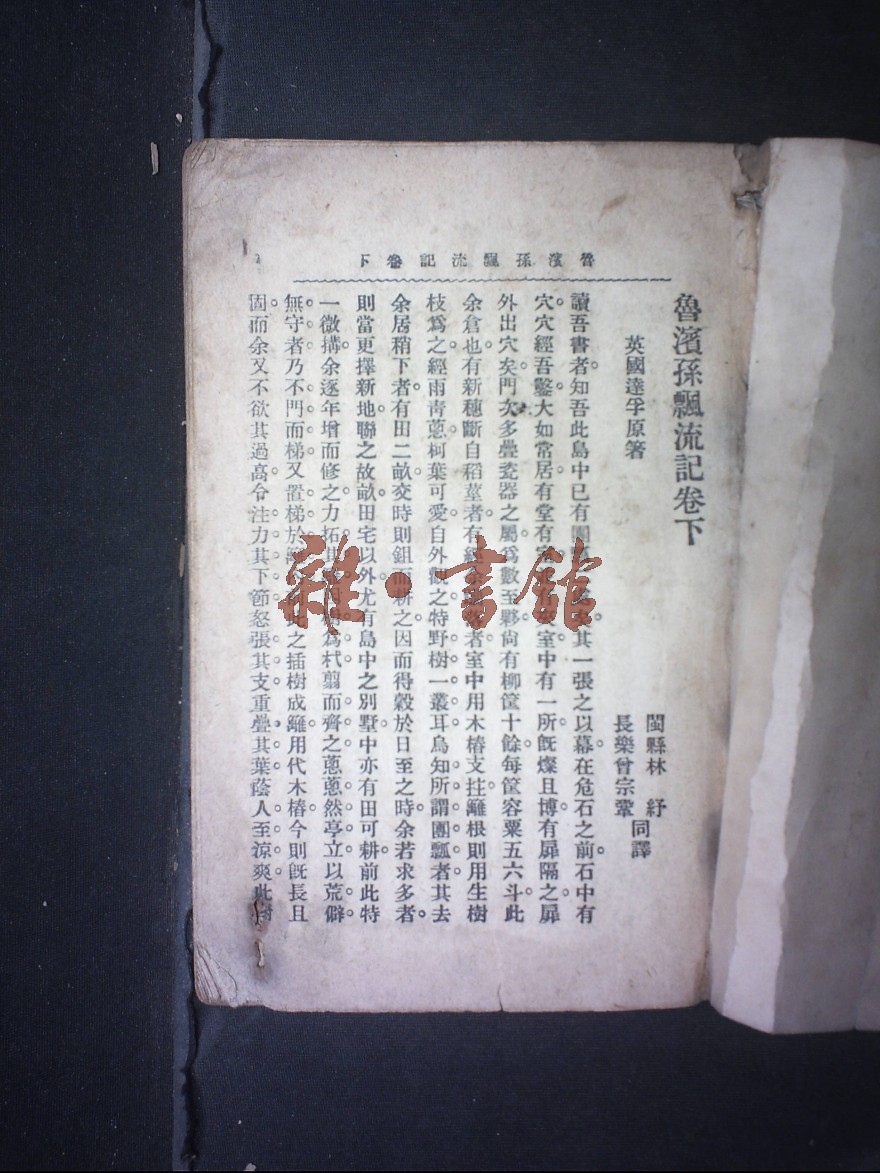 魯濱孫飄流記卷下
魯濱孫飄流記卷下
英國達孚原著
閩縣林紓
長樂曾宗鞏
同譯
讀吾書者。知吾此島中已有團其一張之以幕。在危石之前。石中有
穴。穴經吾鑿。大如常居。有堂有室中有一所。旣燦且博。有扉隔之。扉
外出穴矣。門次多疊瓷器之屬。爲數至夥。尙有柳筐十餘。每筐容粟五六斗。此
余倉也。有新穗斷自稻莖者。有者。室中用木樁支拄。籬根則用生樹
枝爲之。經雨靑蔥。柯葉可愛。自外觀之。特野樹一叢耳。烏知所謂團瓢者。其去
余居稍下者。有田二畝。交時則鉏而耕之。因而得穀。於日至之時。余若求多者。
則當更擇新地聯之。故畝田宅以外。尤有島中之別墅。中亦有田可耕。前此特
一微搆。余逐年增而修之。力拓其爲杙。翦而齊之。蔥蔥然亭立。以荒僻
無守者。乃不門而梯。又置梯於此之插樹成籬。用代木樁。今則旣長且
固。而余又不欲其過高。令注力其下節。怒張其支。重疊其葉。蔭人至涼爽。此樹
雜·書館